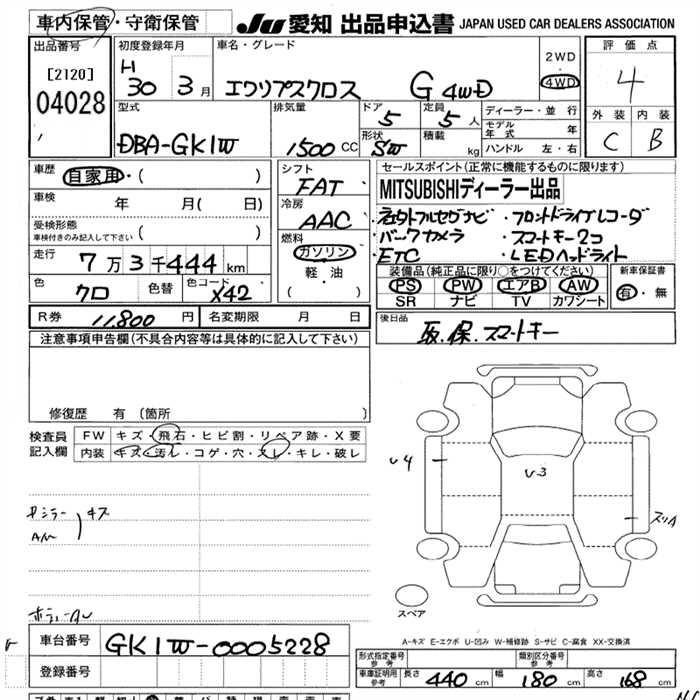 車内保管・守衛保管
JU 愛知 出品申込書 JAPAN USED CAR DEALERS ASSOCIATION
出品番号 初度登録年月 車名・グレード 2WD 4WD 評価点
[2120] H 30 3月 エクリプスクロス G 4WD 4
04028 型式 排気量 ドア 5 定員 5人 ディーラー・並行 外装 内装
DBA-GK1W 1500CC 形状 SW 積載 kg モデル年式 年 C B
ハンドル 左・右
車歴 自家用・( ) シフト FAT セールスポイント(正常に機能するものに限ります)
車検 年 月( 日) 冷房 AAC MITSUBISHIディーラー出品
受検形態 車検付きのみ記入して下さい ( ) 燃料 ガソリン 軽・油 ( )
・フルセグナビ ・フロントドライブレコーダ
・バックカメラ ・スマートキー2コ
・ETC ・LEDヘッドライト
走行 7万3千444km
色 クロ 色替 色コード X42
装備品(純正品に限り○をつけてください) 新車保証書
PS PW エアB AW 有・無
SR ナビ TV カワシート
R券 11,800円 名変期限 月 日
後日品 取.保.スマートキー
注意事項申告欄(不具合内容等は具体的に記入して下さい)
修復歴 有(箇所 )
検査員記入欄 FW キズ・飛石・ヒビ割・リペア跡・X要
内装 キズ・汚レ・コゲ・穴・スレ・キレ・破レ
U4 U-3
キズ
スペア
A-キズ E-エクボ U-凹み W-補修跡 S-サビ C-腐食 XX-交換済
車台番号 GK1W-0005228
登録番号
形式指定番号 参考 類別区分番号 参考
車庫証明用 参考 長さ 440cm 幅 180cm 高さ 168cm